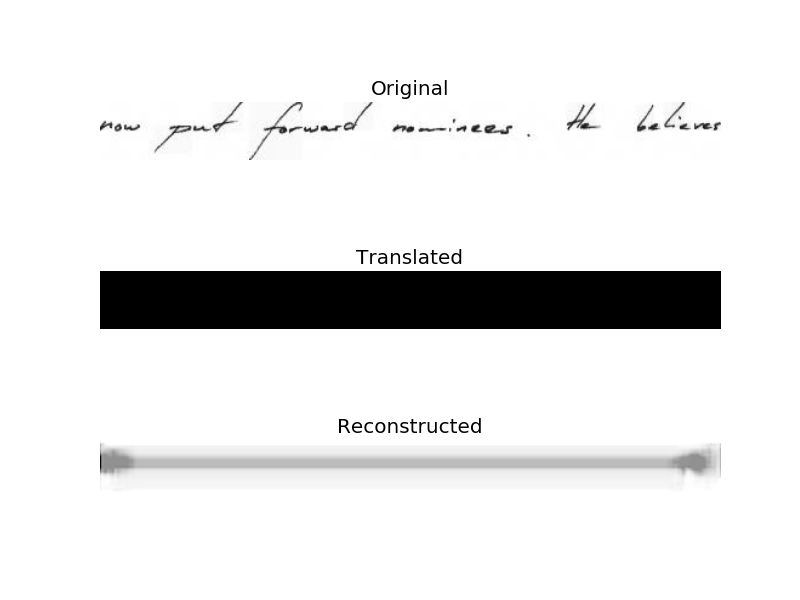 Original
now put forward nominees. He believes
Translated
Reconstructed